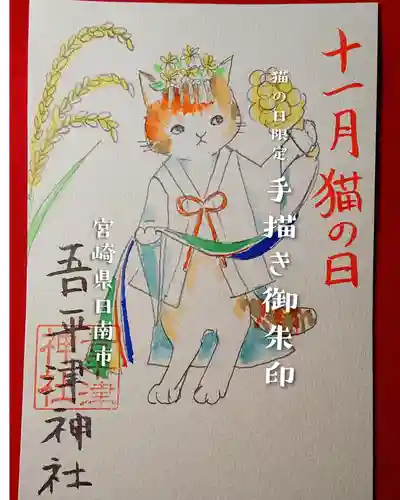 十一月猫の日
猫の日限定
手描き御朱印
宮崎県日南市
吾平津神社